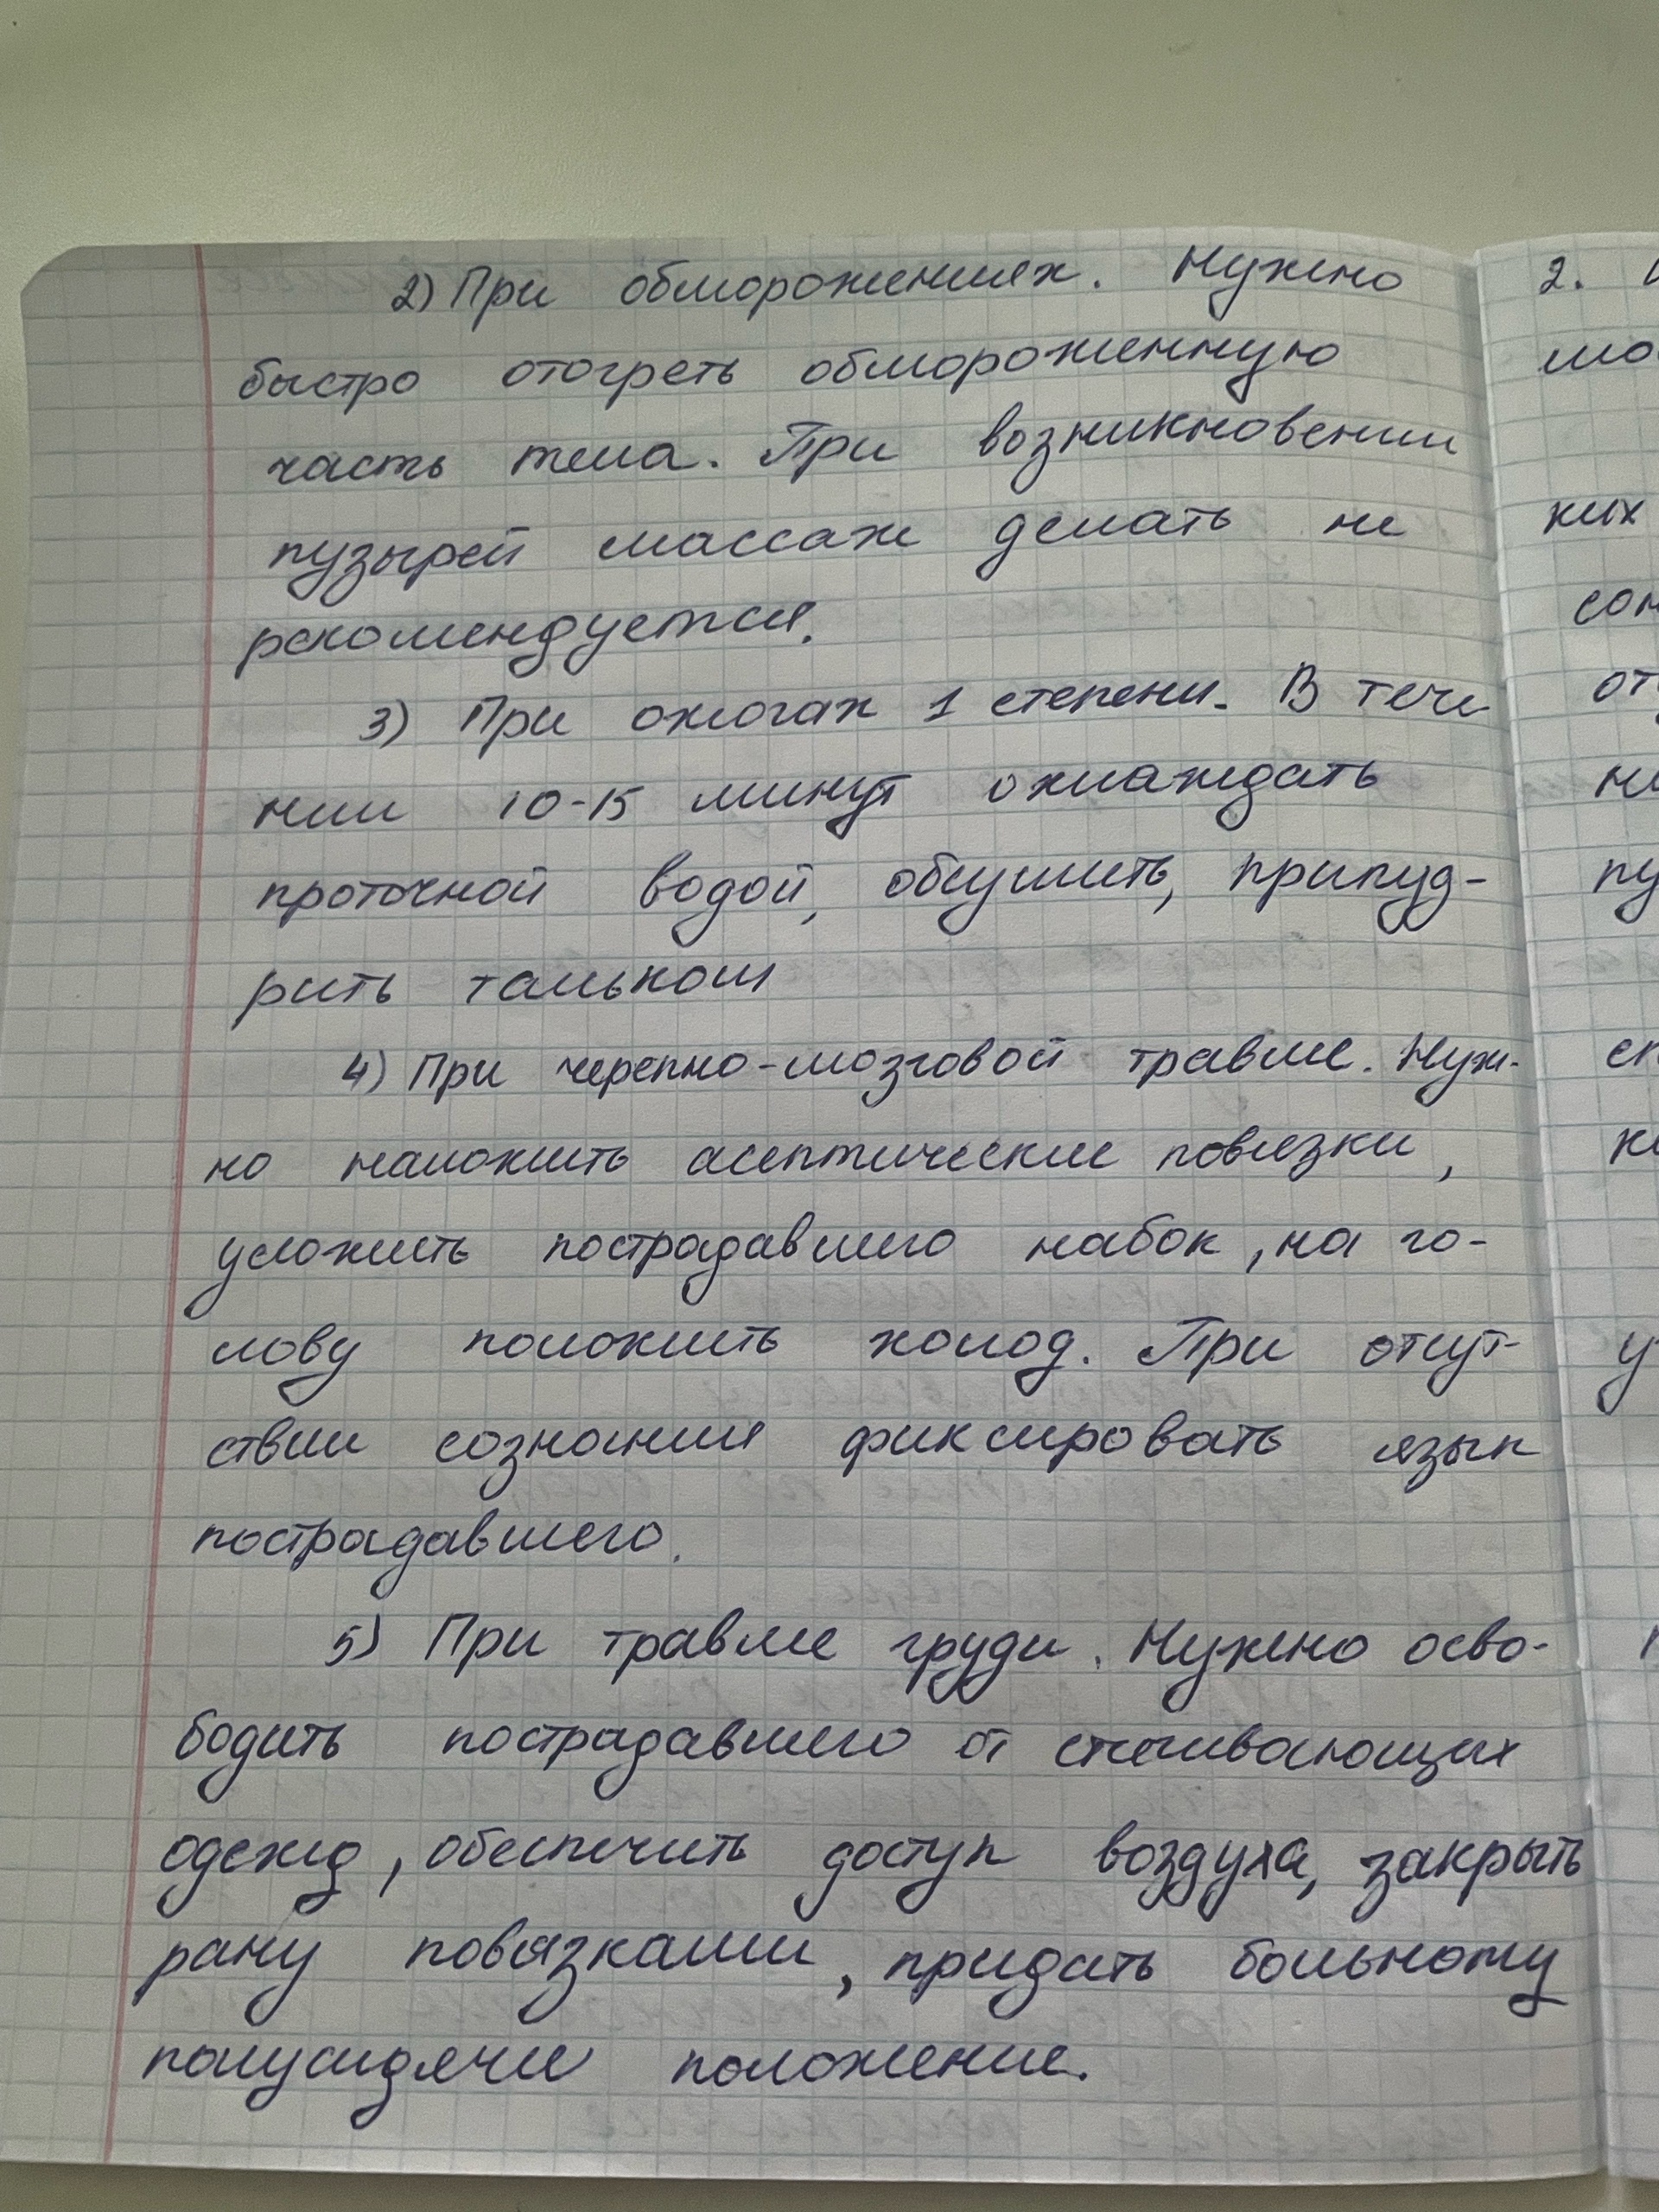 2) При обморожениях. Нужно
быстро отогреть обмороженную
часть тела. При возникновении
пузырей массаж делать не
рекомендуется.
3) При ожогах 1 степени. В тече
нии 10-15 минут охлаждать
проточной водой, обсушить, припуд-
рить тальком
4) При черепно-мозговой травме. Нуж-
но наложить асептические повязки,
уложить пострадавшего набок, на го-
лову положить холод. При отсут-
ствии сознания фиксировать язык
пострадавшего.
5) При травме груди. Нужно осво-
бодить пострадавшего от стягивающих
одежд, обеспечить доступ воздуха, закрыть
рану повязками, придать больному
полусидячее положение.
2.
мо
ких
сон
от
ни
пу
у